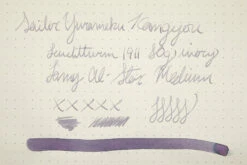 Sailor Yurameku Kangyou
Leuchtturm 1911 80g ivory
Lamy Al-Star Medium
XXXXX